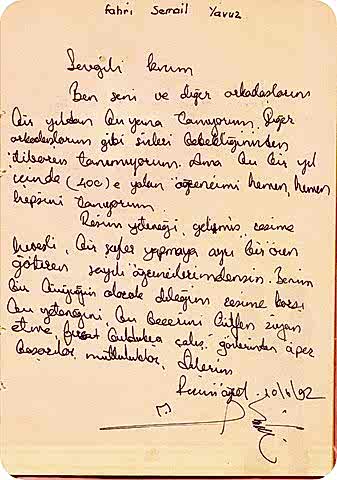 Fahri Semail Yavuz
Sevgili kızım
Ben seni ve diğer arkadaşlarını
bir yıldan bu yana tanıyorum. Diğer
arkadaşların gibi sizleri bebekliğinizden
itibaren tanımıyorum. Ama bu bir yıl
içinde (400) e yakın öğrencimi hemen, hemen
hepsini tanıyorum.
Resim yeteneği, gelişmiş, resime
hevesli, bir şeyler yapmaya ayrı bir özen
gösteren sayılı öğrencilerimdensin. Benim
bir büyüğün olarak dileğim resime karşı
bu yeteneğini, bu becerini lütfen ziyan
etme, fırsat buldukça çalış. gözlerinden öper
başarılar, mutluluklar, dilerim
10/6/92